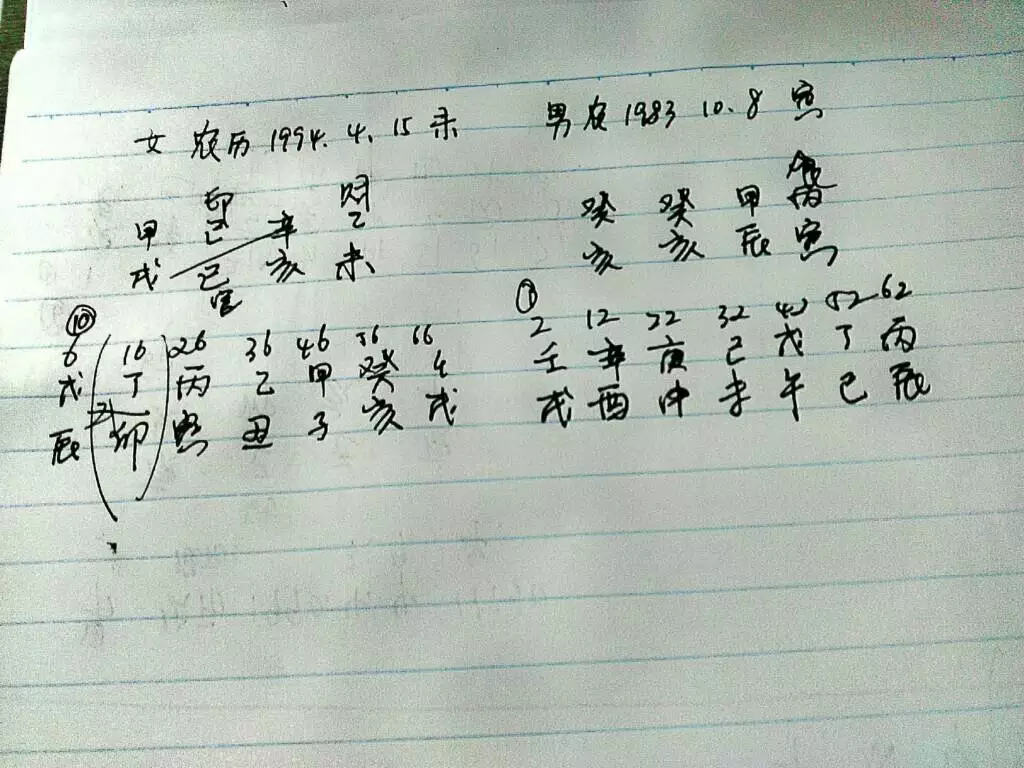 女 农历 1994. 4. 15 未 男农 1983 10. 8 寅
印 财
甲 己 辛 乙 癸 癸 甲 丙
戌 巳 亥 未 亥 亥 辰 寅
官
⑩ ①
6 16 26 36 46 56 66 2 12 22 32 42 52 62
戊 丁 丙 乙 甲 癸 壬 辛 庚 己 戊 丁 丙
辰 卯 寅 丑 子 亥 戌 戌 酉 申 未 午 巳 辰